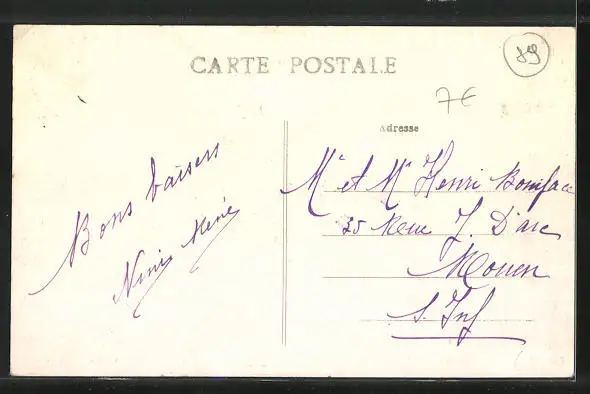 CARTE POSTALE
89
7€
Adresse
Bons baisers
Ninis René
Mr et Me Henri Boniface
35 Rue J. D'arc
Rouen
S. Inf